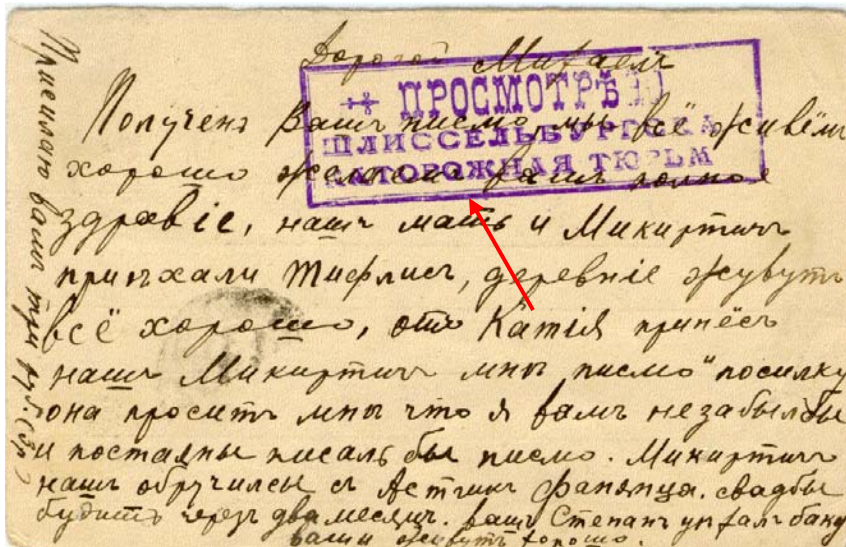 Дорогой Михаель
ПРОСМОТРѢНО
ШЛИССЕЛЬБУРГСКА
КАТОРОЖНАЯ ТЮРЬМ
Получень Вашъ писмо, мы всё живёмъ
хорошо желаемъ вамъ полное
здравіе, нашъ мать и Микиртичъ
приѣхали Тифлисъ, деревніе жувутъ
всё хорошо, отъ Катія принёсъ
нашъ Микиртичъ мнѣ писмо посилку
она проситъ мнѣ что я вамъ незабылбы
и постаяны писалъ бы писмо. Микиртичъ
нашъ обручилсы съ Астхикъ Фанянца. свадбы
будитъ черезъ два месяцъ. вашъ Степанъ уѣхалъ баку
ваши жувутъ хорошо.
Присилаю вамъ три руб. (3р)